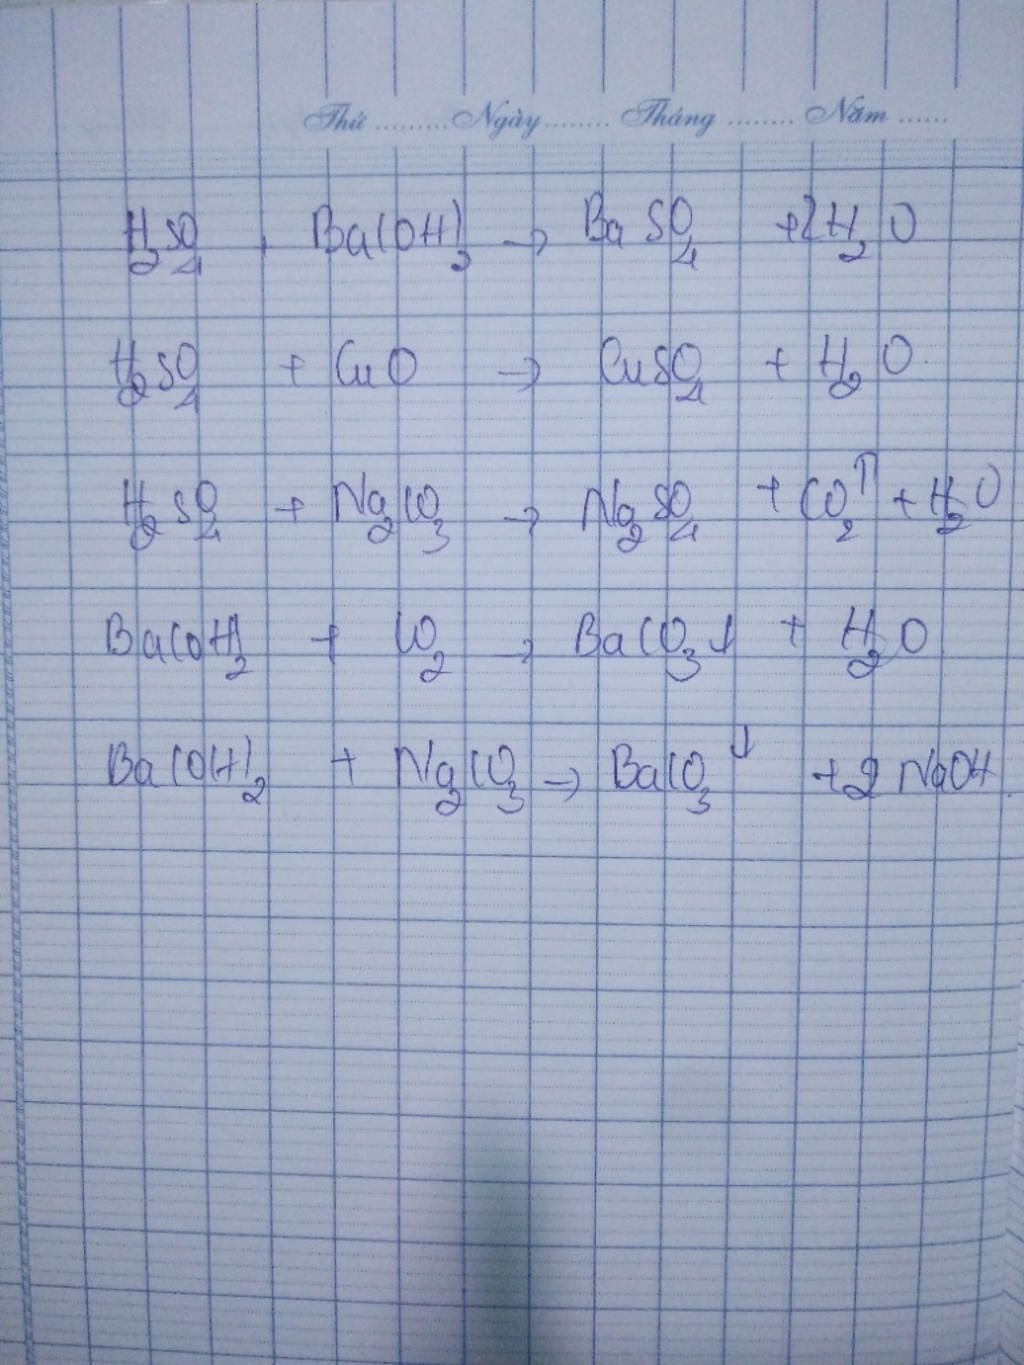 Thứ ......... Ngày ........ Tháng ........ Năm ......
H₂SO₄ + Ba(OH)₂ → BaSO₄ + 2H₂O
H₂SO₄ + CuO → CuSO₄ + H₂O.
H₂SO₄ + Na₂CO₃ → Na₂SO₄ + CO₂↑ + H₂O
Ba(OH)₂ + CO₂ → BaCO₃↓ + H₂O
Ba(OH)₂ + Na₂CO₃ → BaCO₃↓ + 2NaOH.